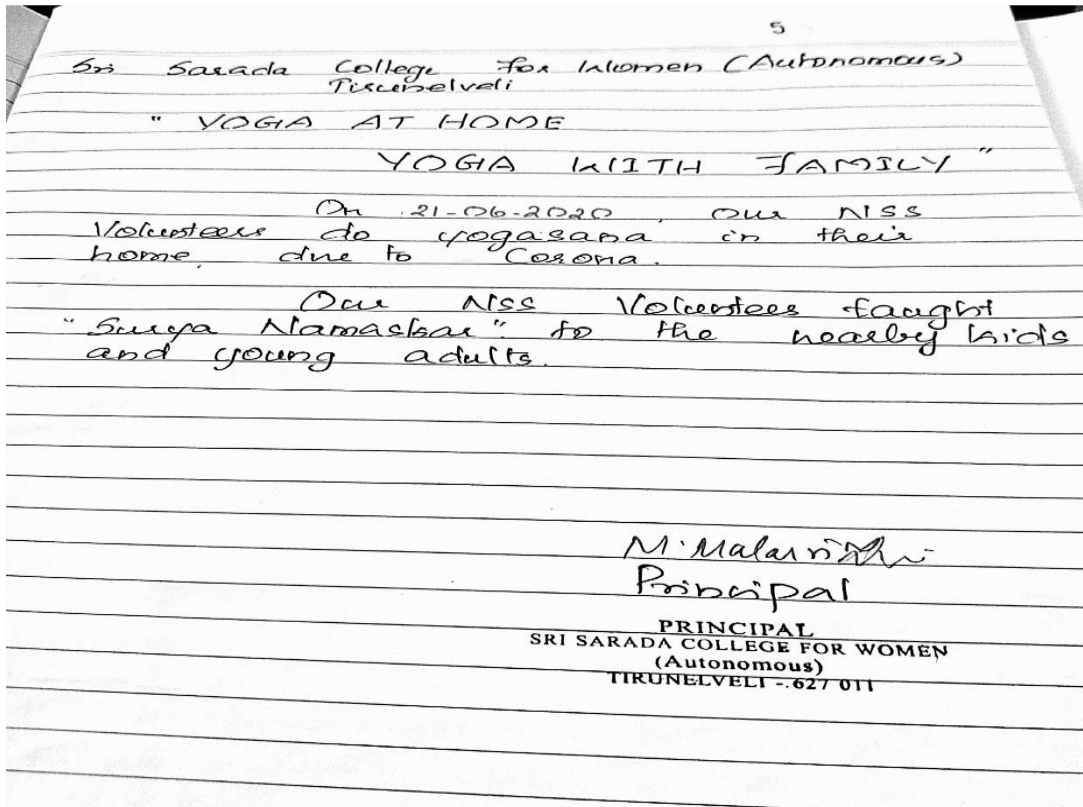 5
Sri Sarada College for Women (Autonomous)
Tirunelveli
" YOGA AT HOME
YOGA WITH FAMILY "
On 21-06-2020, our NSS
Volunteers do yogasana in their
home, due to Corona.
Our NSS Volunteers taught
"Surya Namaskar" to the nearby kids
and young adults.
M. Malarvizhi
Principal
PRINCIPAL
SRI SARADA COLLEGE FOR WOMEN
(Autonomous)
TIRUNELVELI - 627 011